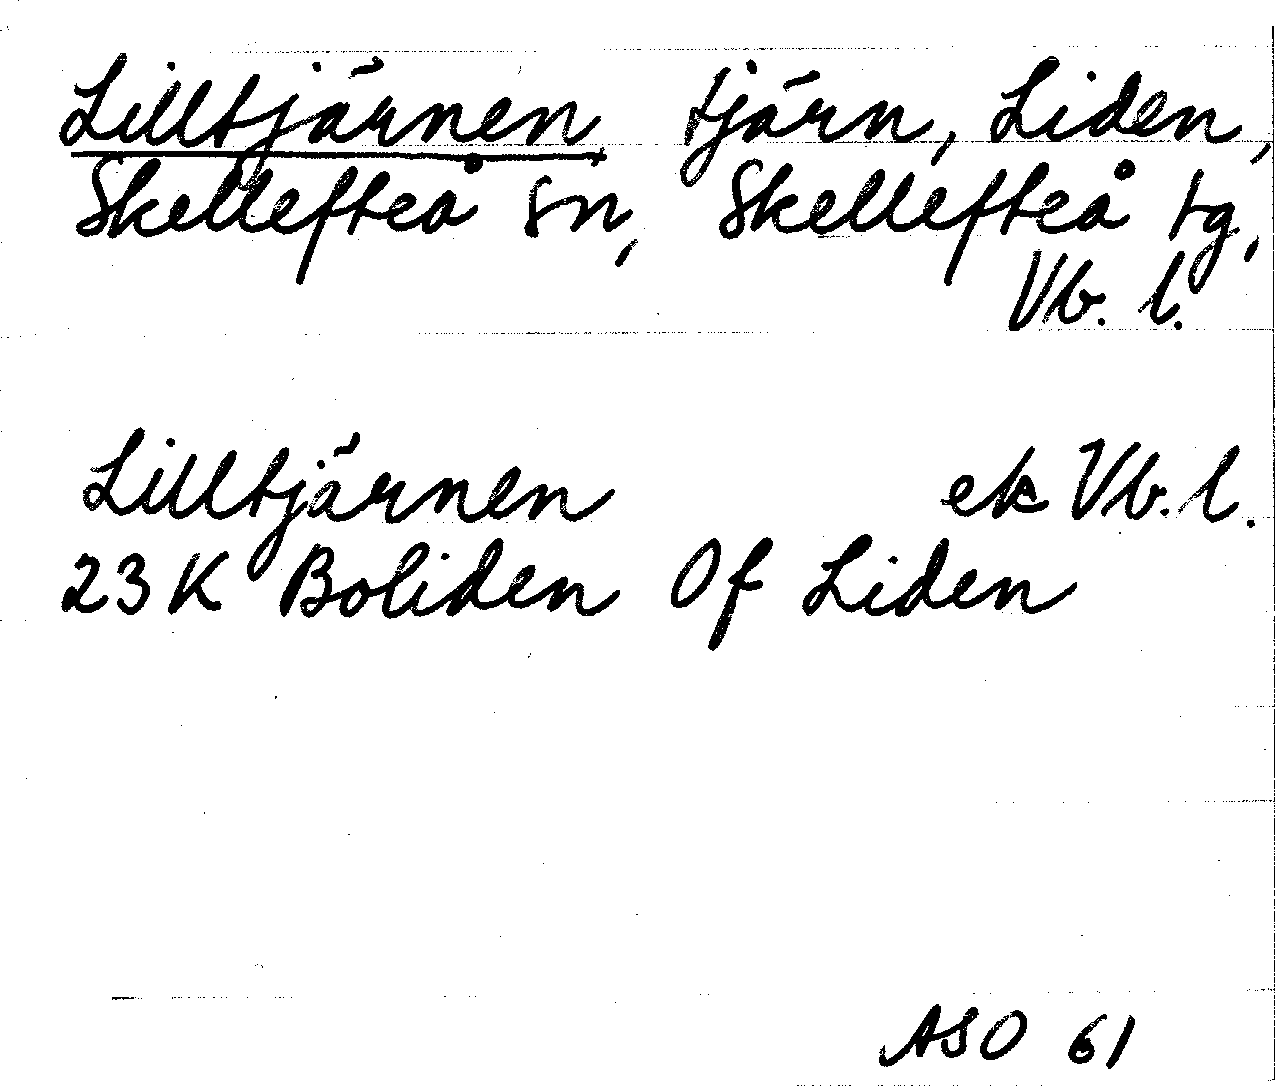 Lilltjärnen, tjärn, Liden,
Skellefteå sn, Skellefteå tg,
Vb. l.
Lilltjärnen ek Vb. l.
23 K Boliden 0f Liden
ASO 61